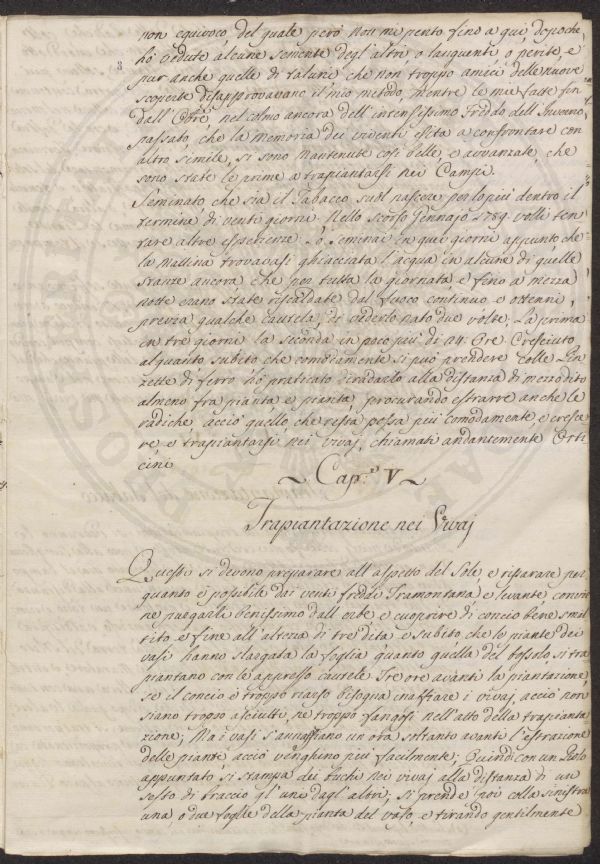 non equivoco, del quale però non mi pento fino a qui, dopoche
8 hò vedute alcune semente degl'altri o languenti, ò perite, e
pur anche quelle di taluni che non troppo amici delle nuove
scoperte disapprovavano il mio metodo, mentre le mie fatte fin
dall' nel colmo ancora dell'intensissimo Freddo dell'Inverno
passato, che la memoria dei viventi esita a confrontare con
altro simile, si sono mantenute così belle, e avvanzate, che
sono state le prime a trapiantarsi nei Campi.
Seminato che sia il Tabacco suol nascere per lo più dentro il
termine di venti giorni. Nello scorso Gennajo 1789. volli ten
tare altre esperienze. Lo seminai in quei giorni appunto, che
la mattina trovavasi ghiacciata l'acqua in alcune di quelle
stanze ancora, che per tutta la giornata e fino a mezza
notte erano state riscaldate dal fuoco continuo e ottenni,
previa qualche cautela, di vederlo nato due volte; La prima
in tre giorni la seconda in poco più di 24. Ore. Cresciuto
alquanto, subito che comodamente si può prendere colle Pin
zette di ferro, hò praticato diradarlo alla distanza di mezzo dito
almeno fra pianta e pianta, procurando estrarre anche le
radiche, acciò quello, che resta possa più comodamente, e cresce
re, e trapiantarsi nei vivaj, chiamati andantemente Orti
cini
~ Cap.º V ~
Trapiantazione nei Vivaj
Questi si devono preparare all'aspetto del Sole, e riparare per
quanto è possibile dai venti freddi Tramontana e Levante convie
ne purgarli benissimo dall'erbe e cuoprire di concio bene smal
tito e fine all'altezza di tre dita e subito, che le piante dei
vasi hanno slargata la foglia quanto quella del bossolo, si tra
piantano con le appresso cautele. Tre ore avanti la piantazione
se il concio è troppo riarso bisogna inaffiare i vivaj, acciò non
siano troppo asciutti, ne troppo fangosi nell'atto della trapianta
zione; Ma i vasi s'annaffiano un'ora soltanto avanti l'estrazione
delle piante acciò venghino più facilmente; Quindi con un Piolo
appuntato si stampa dei buchi nei vivaj alla distanza di un
sesto di braccio gl'uni dagl'altri; si prende poi colla sinistra
una, o due foglie della pianta del vaso, e tirando gentilmente